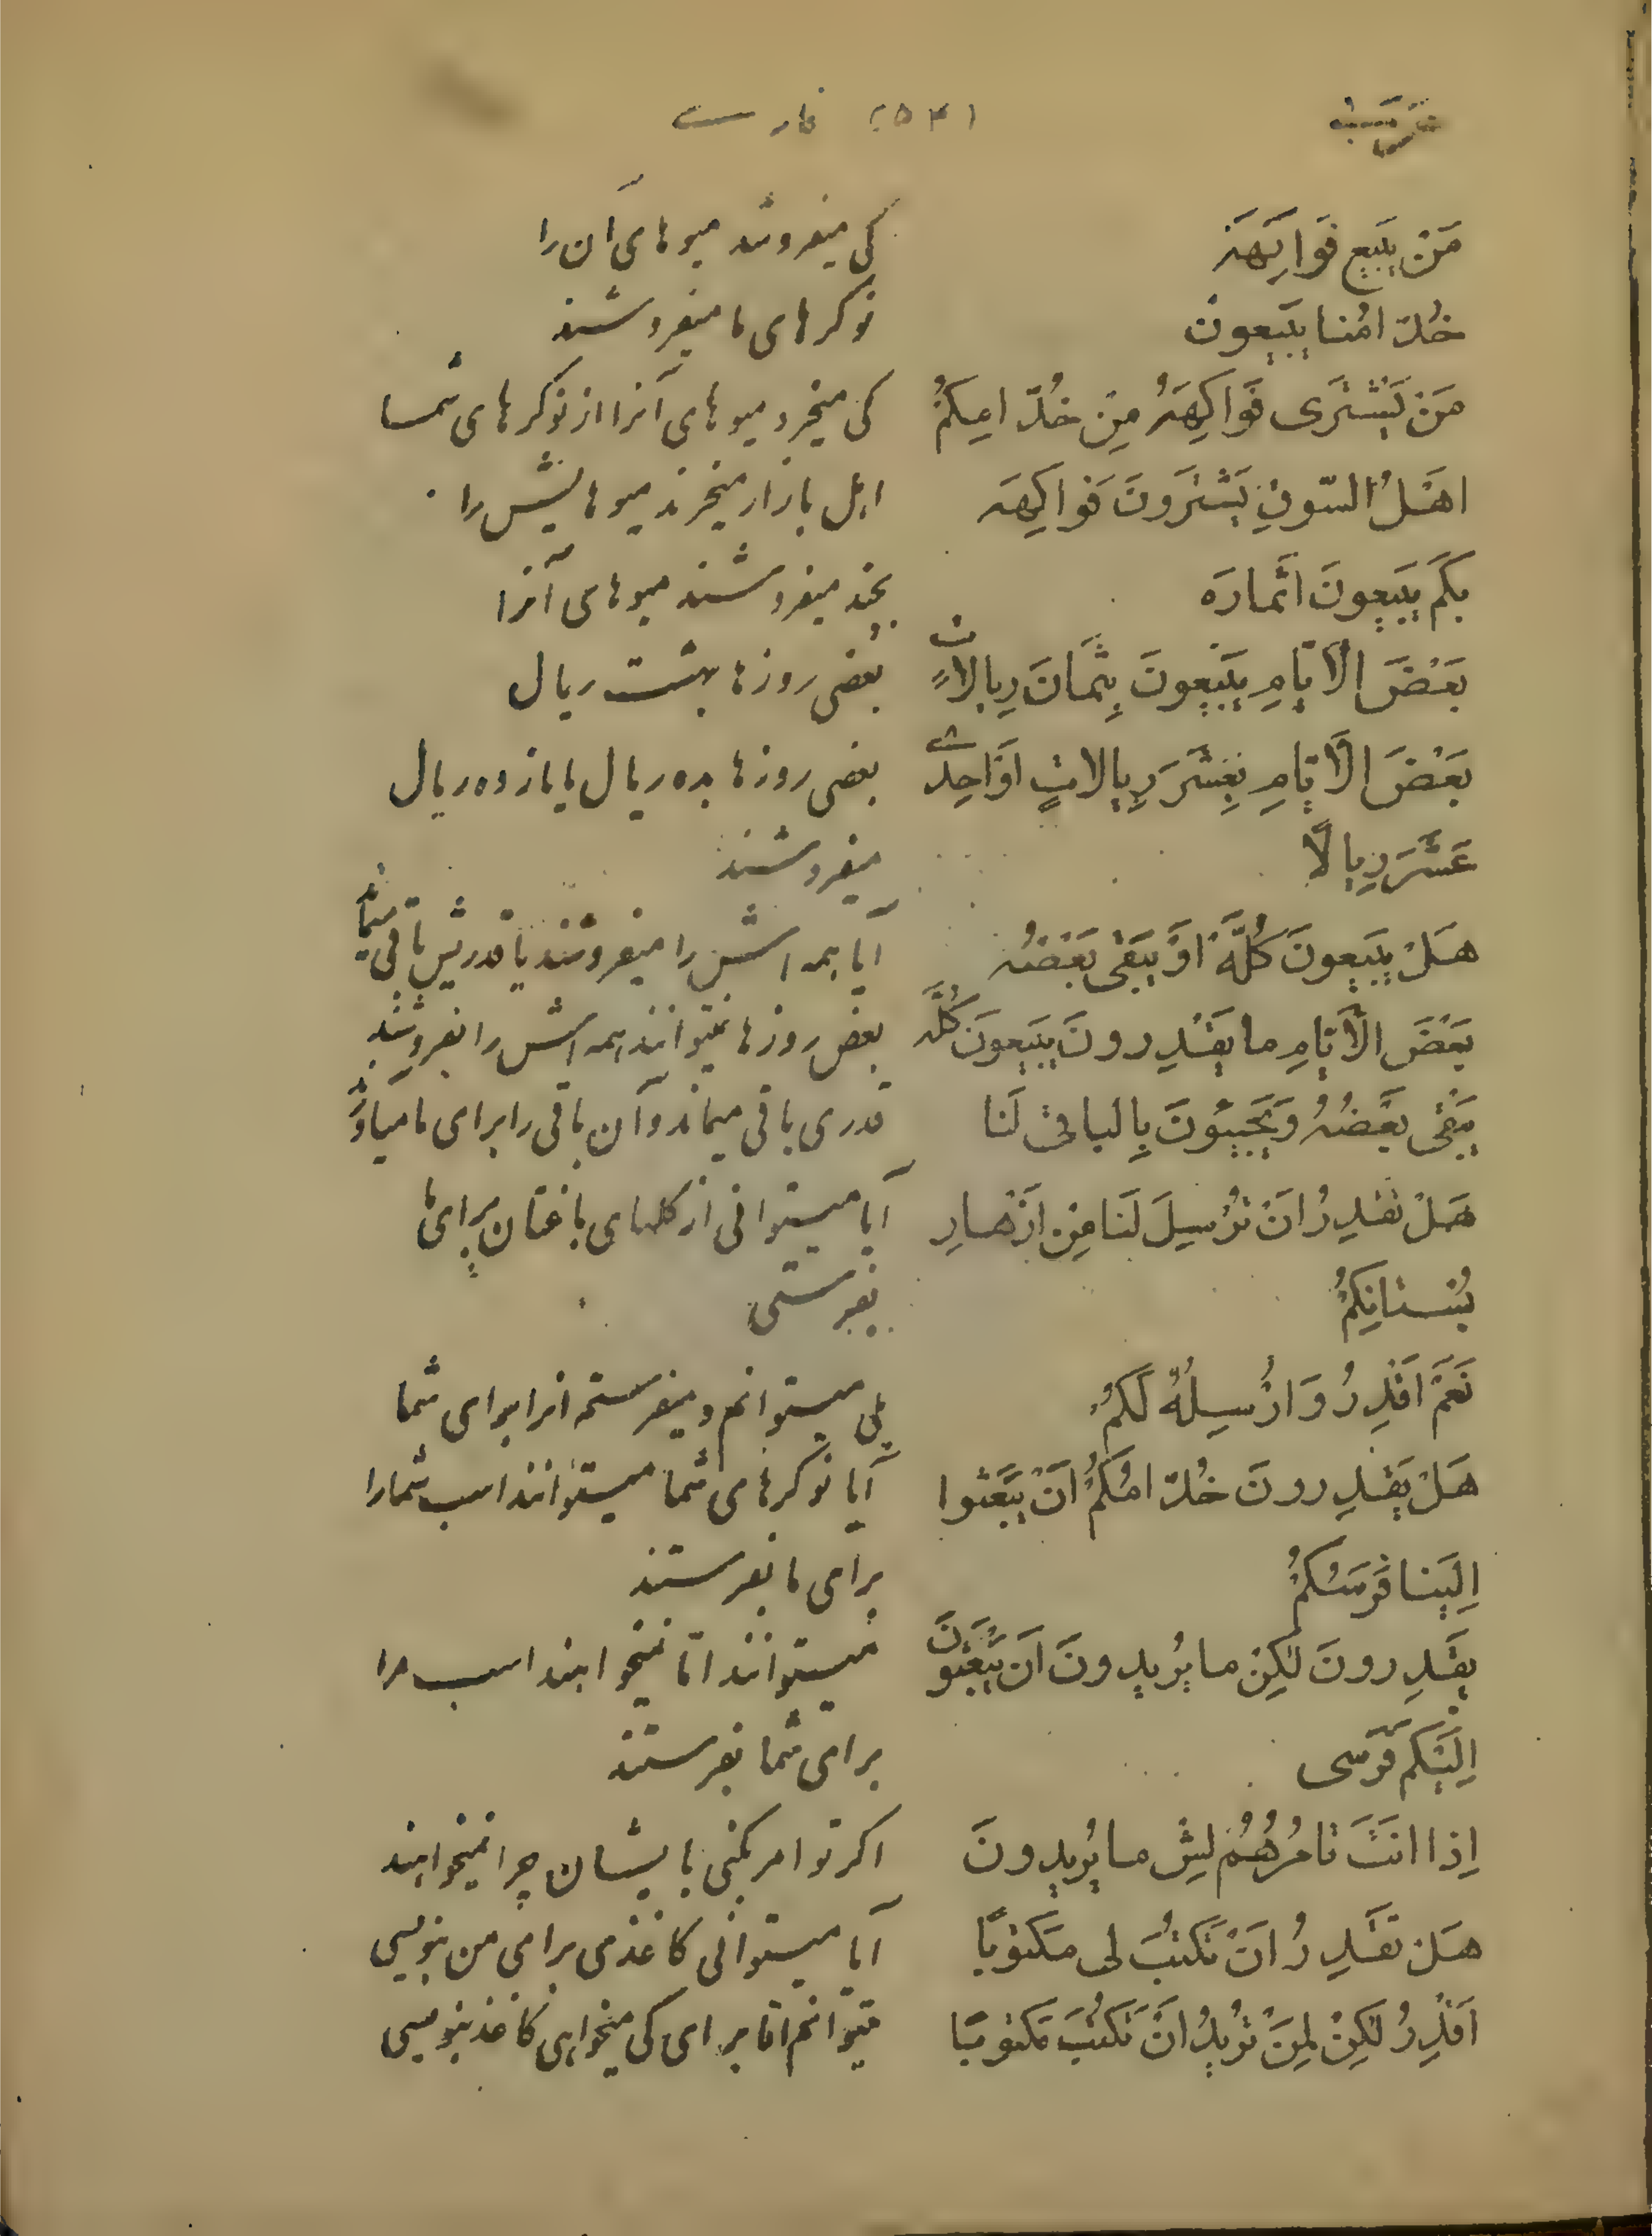 عربی (۵۴) فارسی
مَنْ یَبیعُ فَواکِهَهُ کی میفروشد میوهای آن را
خُدّامُنا یَبیعونَ نوکرهای ما میفروشند
مَنْ یَشْتَری فَواکِهَهُ مِنْ خُدّامِکُمْ کی میخرد میوهای آنرا از نوکرهای شما
اَهْلُ السّوقِ یَشْتَرونَ فَواکِهَه اهل بازار میخرند میوهایش را
بِکَمْ یَبیعونَ اَثْمارَه بچند میفروشند میوهای آنرا
بَعْضَ الاَیّامِ یَبیعونَ بِثَمانَ رِیالاتٍ بعضی روزها بهشت ریال
بَعْضَ الاَیّامِ بِعَشَرَ رِیالاتٍ اَوْ اَحِدیٰ بعضی روزها بده ریال یا یازده ریال
عَشَرَ رِیالًا میفروشند
هَلْ یَبیعونَ کُلَّهُ اَوْ یَبْقیٰ بَعْضُهُ آیا همه اش را میفروشند یا قدریش باقی میماند
بَعْضَ الاَیّامِ ما یَقْدِرونَ یَبیعونَ کُلَّه بعض روزها نمیتوانند همه اش را بفروشند
یَبْقیٰ بَعْضُهُ وَ یَجیئونَ بِالباقی لَنا قدری باقی میماند و آن باقی را برای ما میآورند
هَلْ تَقْدِرُ اَنْ تُرْسِلَ لَنا مِنْ اَزْهارِ آیا میتوانی از گلهای باغتان برای ما
بُسْتانِکُمْ بفرستی
نَعَمْ اَقْدِرُ وَ اُرْسِلُهُ لَکُمْ بلی میتوانم و میفرستم آنرا برای شما
هَلْ یَقْدِرونَ خُدّامُکُمْ اَنْ یَبْعَثوا آیا نوکرهای شما میتوانند اسب شما را
اِلَیْنا فَرَسَکُمْ برای ما بفرستند
یَقْدِرونَ لکِنْ ما یُریدونَ اَنْ یَبْعَثونَ میتوانند امّا نمیخواهند اسب مرا
اِلَیْکُمْ فَرَسی برای شما بفرستند
اِذا اَنْتَ تامُرُهُمْ لِشْ ما یُریدونَ اگر تو امر بکنی بایشان چرا نمیخواهند
هَلْ تَقْدِرُ اَنْ تَکْتُبَ لی مَکْتوبًا آیا میتوانی کاغذی برای من بنویسی
اَقْدِرُ لکِنْ لِمَنْ تُریدُ اَنْ تَکْتُبَ مَکْتوبًا میتوانم امّا برای کی میخواهی کاغذ بنویسی